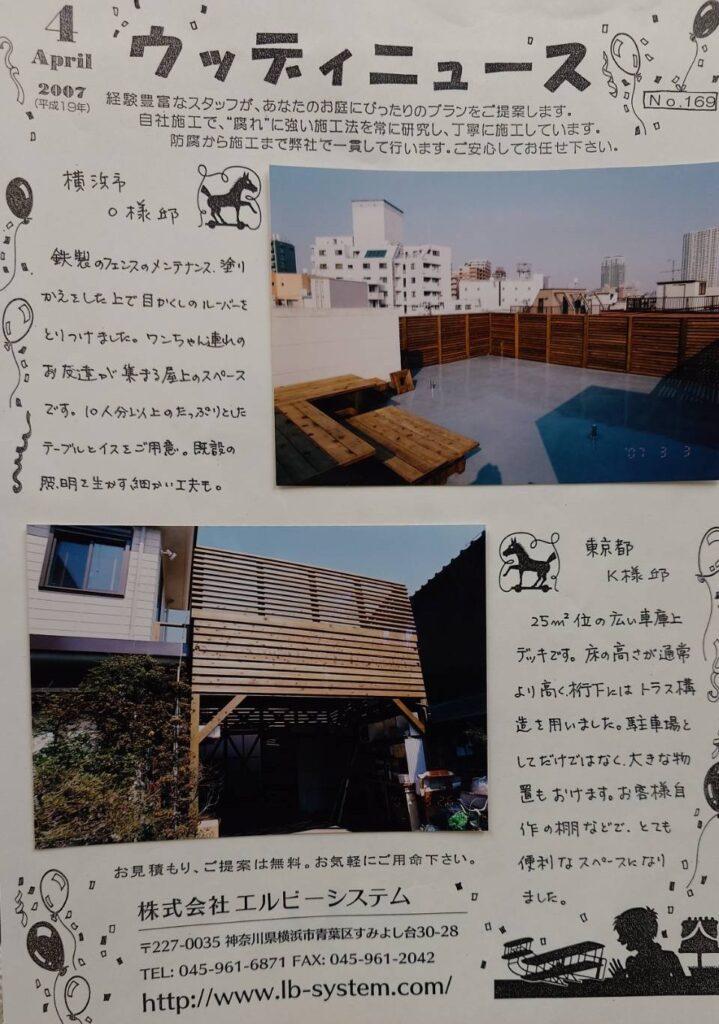 4
April
2007
(平成19年)
ウッディニュース
No.169
経験豊富なスタッフが、あなたのお庭にぴったりのプランをご提案します。
自社施工で、“腐れ”に強い施工法を常に研究し、丁寧に施工しています。
防腐から施工まで弊社で一貫して行います。ご安心してお任せ下さい。
横浜市
O様邸
鉄製のフェンスのメンテナンス、塗り
かえをした上で目かくしのルーバーを
とりつけました。ワンちゃん連れの
お友達が集まる屋上のスペース
です。10人分以上のたっぷりとした
テーブルとイスをご用意。既設の
照明を生かす細かい工夫も。
'07 3 3
東京都
K様邸
25m²位の広い車庫上
デッキです。床の高さが通常
より高く、桁下にはトラス構
造を用いました。駐車場と
してだけではなく、大きな物
置もおけます。お客様自
作の棚などで、とても
便利なスペースになり
ました。
お見積もり、ご提案は無料。お気軽にご用命下さい。
株式会社 エルビーシステム
〒227-0035 神奈川県横浜市青葉区すみよし台30-28
TEL: 045-961-6871 FAX: 045-961-2042
http://www.lb-system.com/